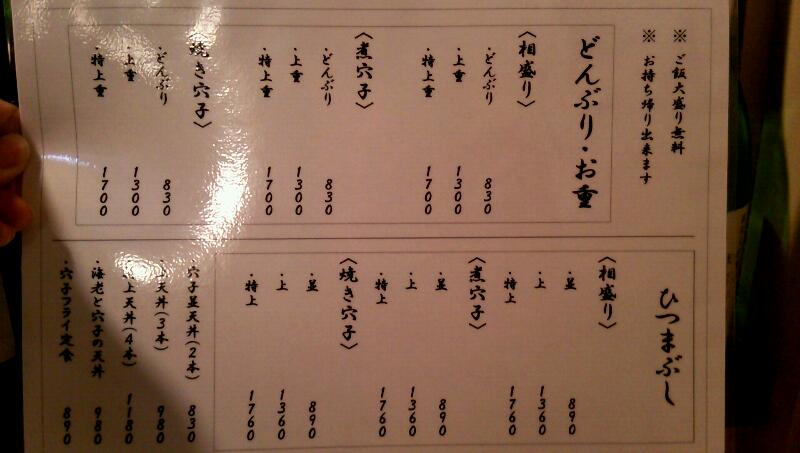 ※ ご飯大盛り無料
※ お持ち帰り出来ます
どんぶり・お重
〈相盛り〉
・どんぶり 830
・上重 1300
・特上重 1700
〈煮穴子〉
・どんぶり 830
・上重 1300
・特上重 1700
〈焼き穴子〉
・どんぶり 830
・上重 1300
・特上重 1700
ひつまぶし
〈相盛り〉
・並 890
・上 1360
・特上 1760
〈煮穴子〉
・並 890
・上 1360
・特上 1760
〈焼き穴子〉
・並 890
・上 1360
・特上 1760
・穴子並天丼(2本) 830
上天丼(3本) 980
上天丼(4本) 1180
・海老と穴子の天丼 980
・穴子フライ定食 890